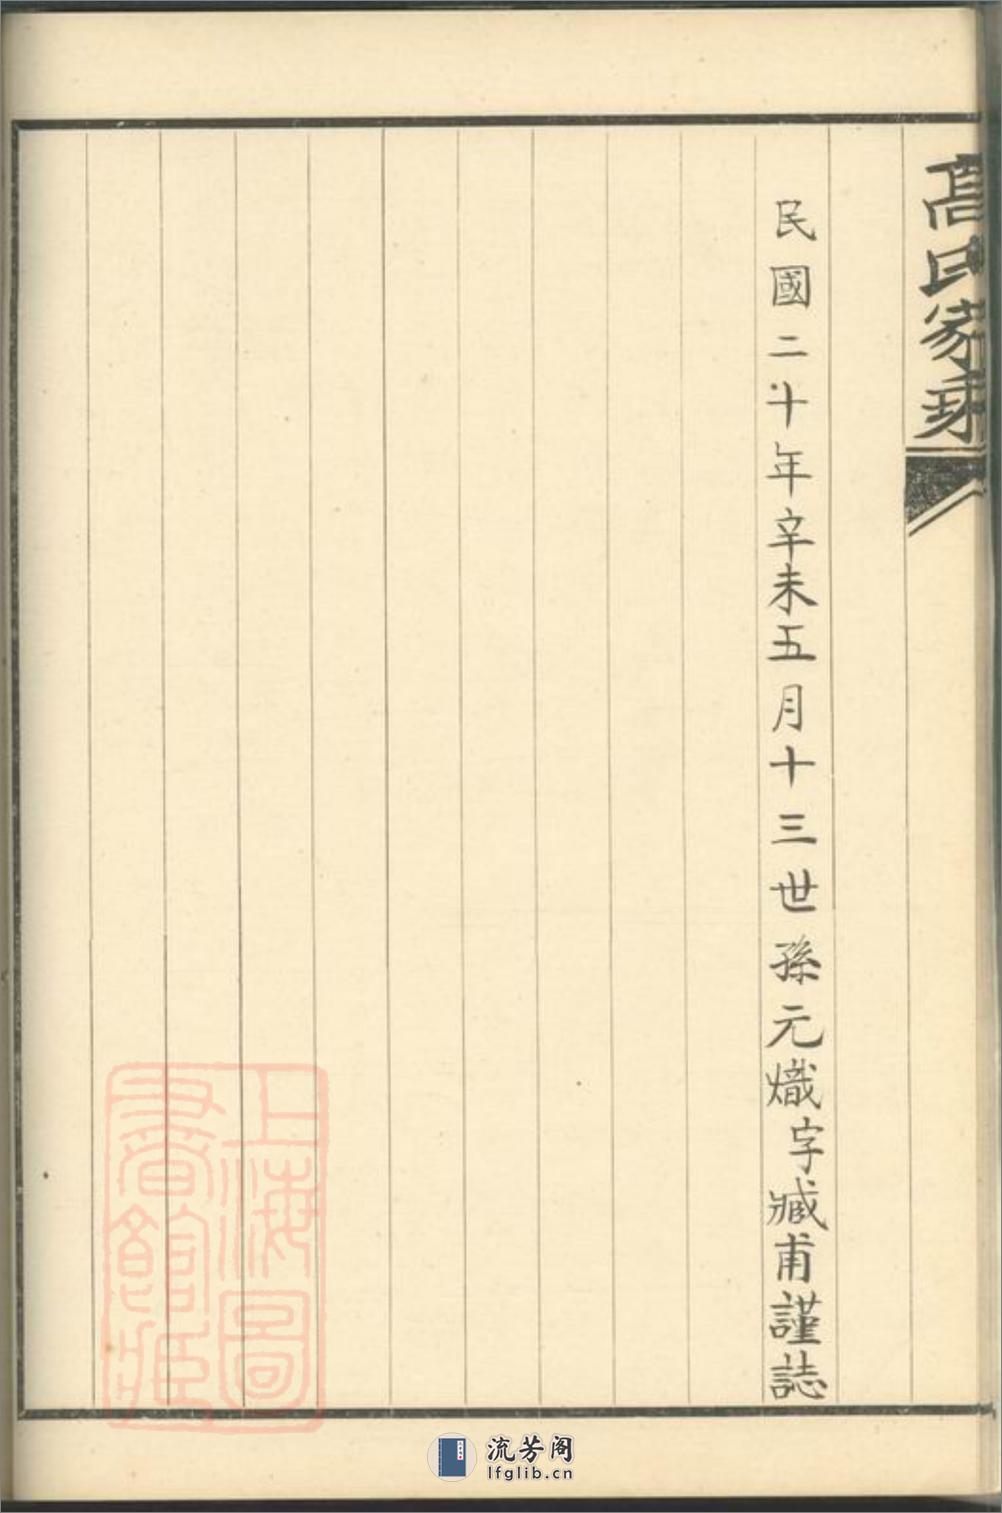 高氏家乘
民國二十年辛未五月十三世孫元熾字臧甫謹誌
上海圖
書館藏
流芳阁
lfglib.cn